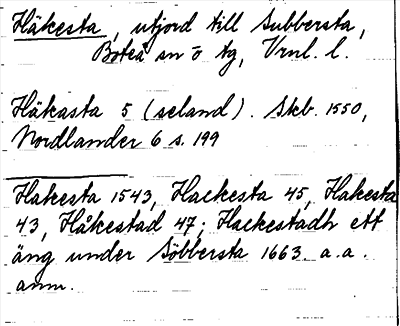 Häkesta, utjord till Subbersta,
Boteå sn o tg, Vrnl. l.
Häkasta 5 (seland). Skb. 1550,
Nordlander 6 s. 199
Hakesta 1543, Hackesta 45, Hakesta
43, Håkestad 47; Hackestadh ett
äng under Söbbersta 1663. a. a.
anm.